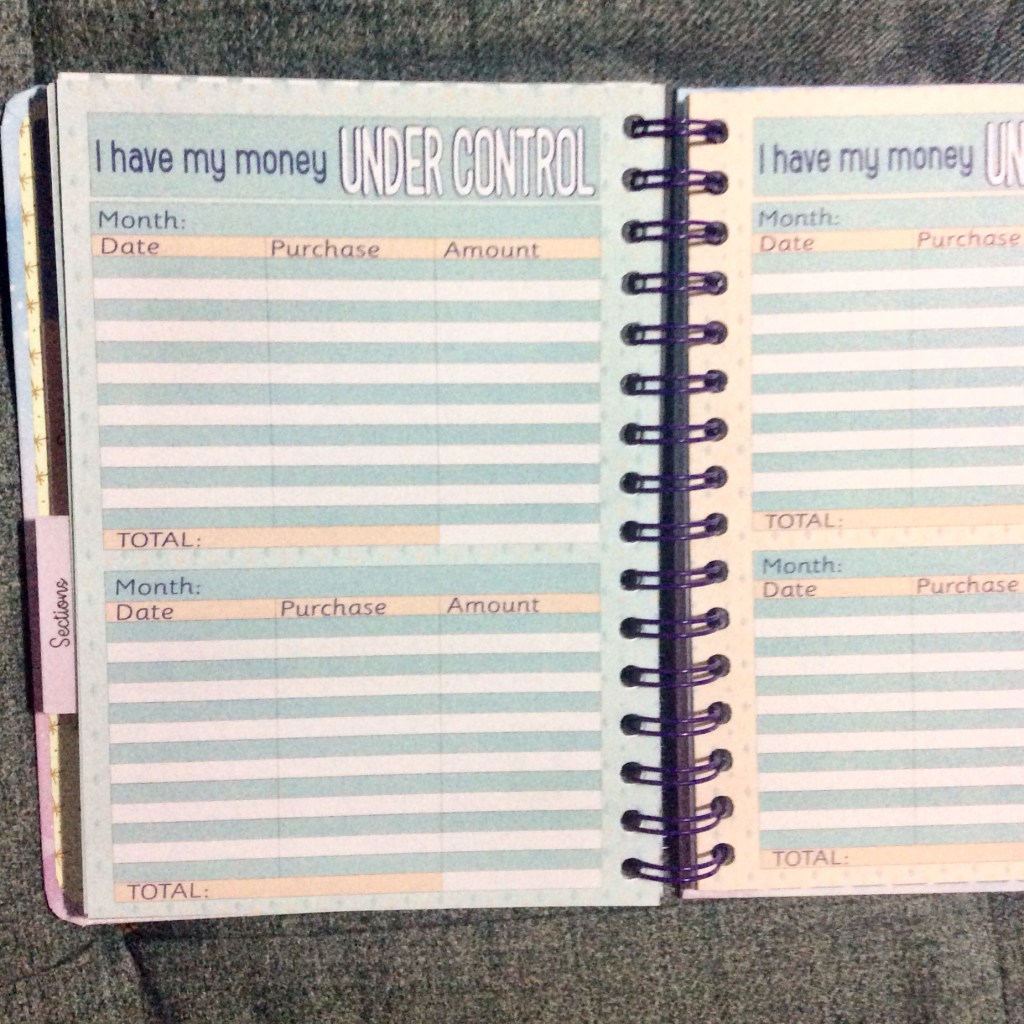 I have my money UNDER CONTROL
Month:
Date Purchase Amount
TOTAL:
Month:
Date Purchase Amount
TOTAL:
Sections
I have my money UN
Month:
Date Purchase
TOTAL:
Month:
Date Purchase
TOTAL: